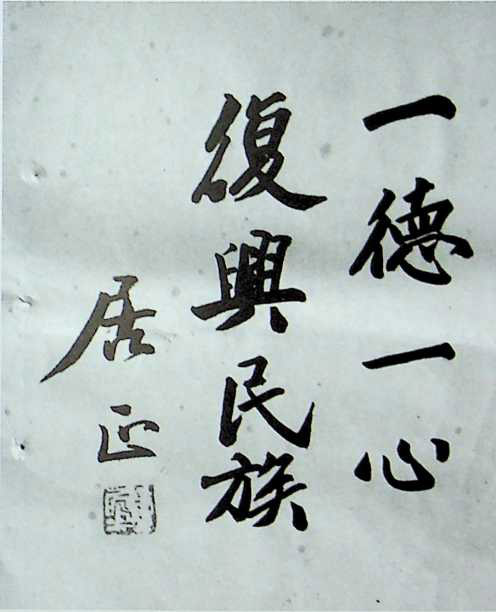 一德一心
復興民族
居正